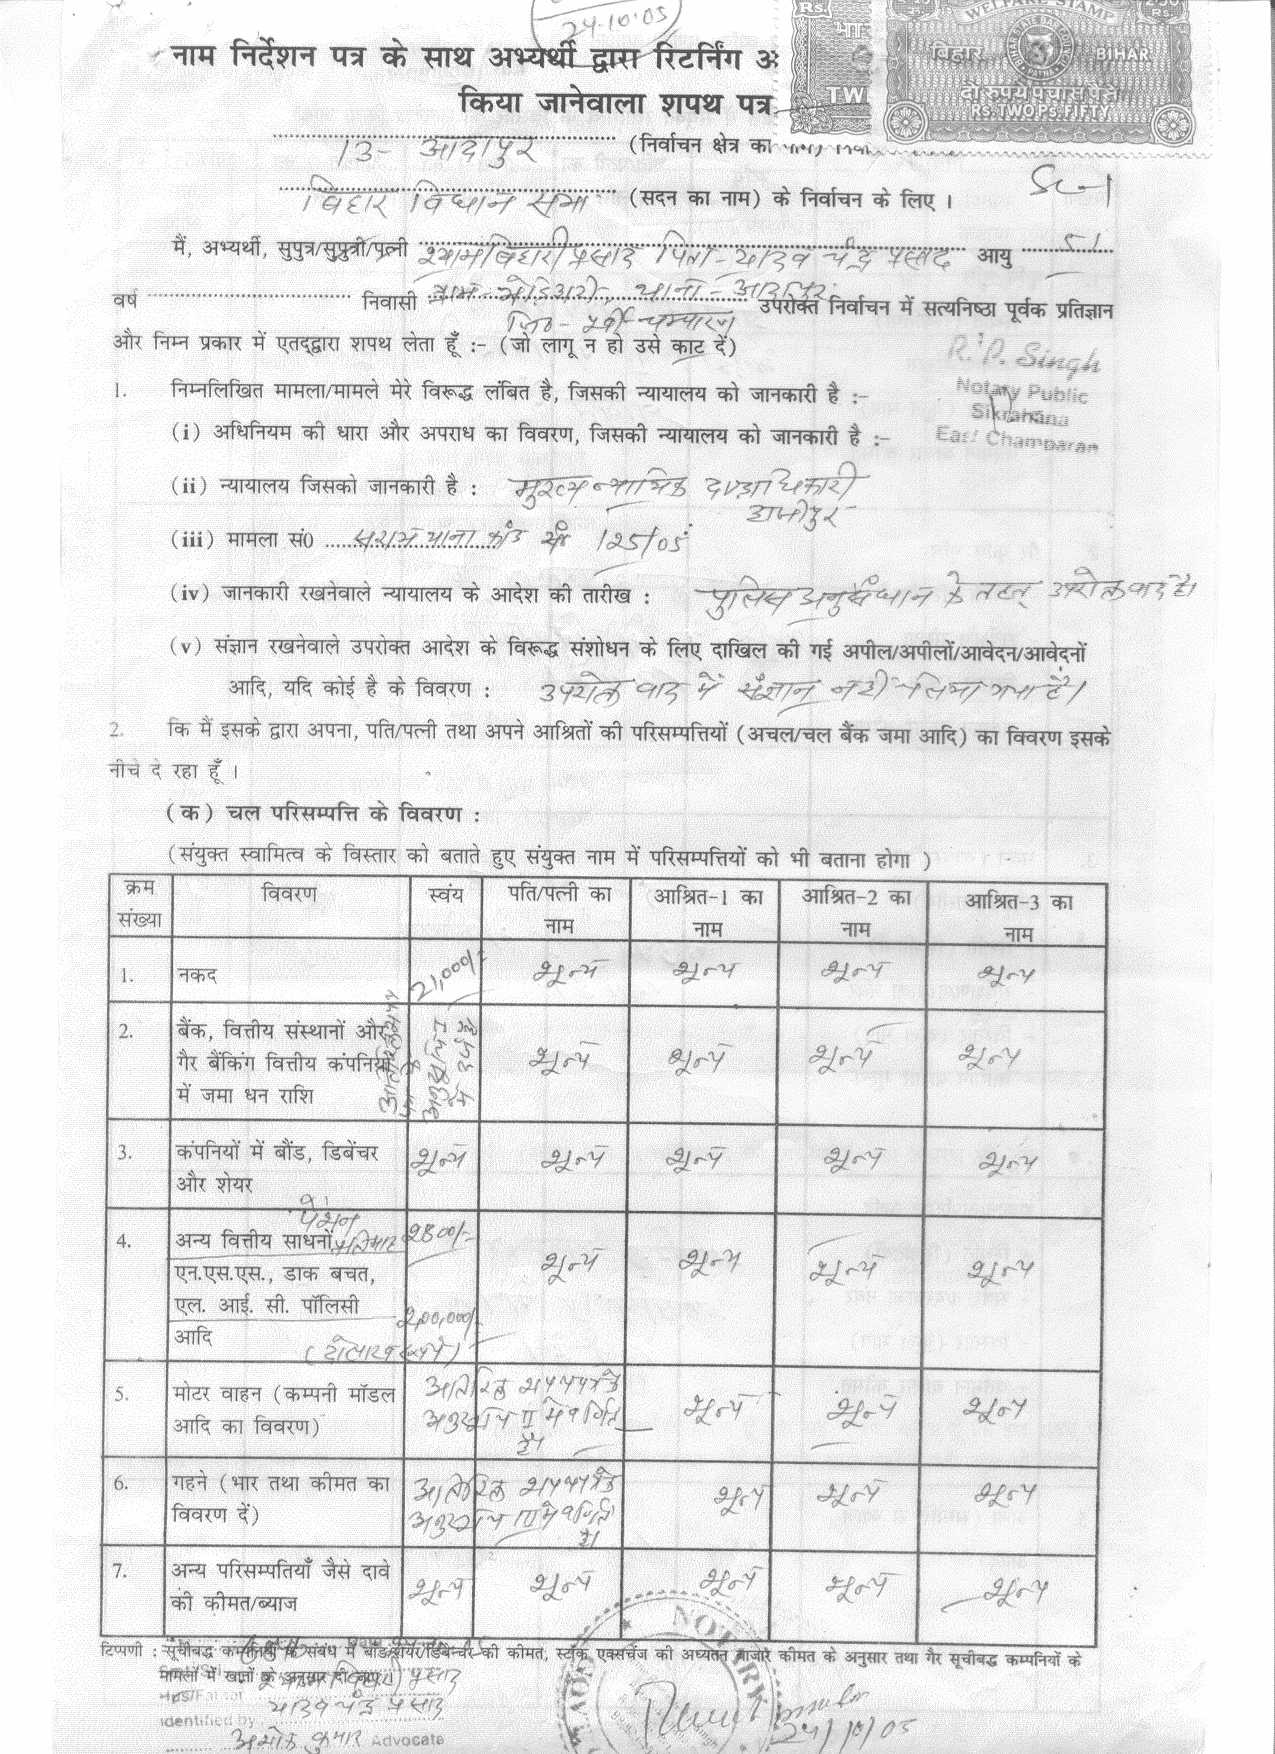 24.10.05
नाम निर्देशन पत्र के साथ अभ्यर्थी द्वारा रिटर्निंग अ
किया जानेवाला शपथ पत्र
WELFARE STAMP
बिहार BIHAR
दो रुपये पचास पैसे
RS. TWO PS. FIFTY
Rs.
TW
13- आदापुर (निर्वाचन क्षेत्र का
बिहार विधान सभा (सदन का नाम) के निर्वाचन के लिए ।
मैं, अभ्यर्थी, सुपुत्र/सुपुत्री/पत्नी श्याम बिहारी प्रसाद पिता - यादव चंद्र प्रसाद आयु 51
वर्ष निवासी ग्राम- थाना - आदापुर उपरोक्त निर्वाचन में सत्यनिष्ठा पूर्वक प्रतिज्ञान
जि०- पूर्वी चम्पारण
और निम्न प्रकार में एतद्द्वारा शपथ लेता हूँ :- (जो लागू न हो उसे काट दें)
R. P. Singh
Notary Public
Sikrahana
East Champaran
1. निम्नलिखित मामला/मामले मेरे विरूद्ध लंबित है, जिसकी न्यायालय को जानकारी है :-
(i) अधिनियम की धारा और अपराध का विवरण, जिसकी न्यायालय को जानकारी है :-
(ii) न्यायालय जिसको जानकारी है : मुख्य न्यायिक दण्डाधिकारी
हाजीपुर
(iii) मामला सं0 सराय थाना कांड सं० 125/05
(iv) जानकारी रखनेवाले न्यायालय के आदेश की तारीख : पुलिस अनुसंधान के तहत् उपरोक्त वाद है।
(v) संज्ञान रखनेवाले उपरोक्त आदेश के विरूद्ध संशोधन के लिए दाखिल की गई अपील/अपीलों/आवेदन/आवेदनों
आदि, यदि कोई है के विवरण : उपरोक्त वाद में संज्ञान नहीं लिया गया है।
2. कि मैं इसके द्वारा अपना, पति/पत्नी तथा अपने आश्रितों की परिसम्पत्तियों (अचल/चल बैंक जमा आदि) का विवरण इसके
नीचे दे रहा हूँ ।
(क) चल परिसम्पत्ति के विवरण :
(संयुक्त स्वामित्व के विस्तार को बताते हुए संयुक्त नाम में परिसम्पत्तियों को भी बताना होगा )
क्रम संख्या विवरण स्वंय पति/पत्नी का नाम आश्रित-1 का नाम आश्रित-2 का नाम आश्रित-3 का नाम
1. नकद 21,000/- शून्य शून्य शून्य शून्य
2. बैंक, वित्तीय संस्थानों और
गैर बैंकिंग वित्तीय कंपनियों
में जमा धन राशि
अतिरिक्त शपथ पत्र के अनुसूचि I में दर्ज है शून्य शून्य शून्य शून्य
3. कंपनियों में बौंड, डिबेंचर
और शेयर शून्य शून्य शून्य शून्य शून्य
पेंशन
4. अन्य वित्तीय साधनों प्रतिमाह 2800/-
एन.एस.एस., डाक बचत, शून्य शून्य शून्य शून्य
एल. आई. सी. पॉलिसी 2,00,000/-
आदि (दो लाख रूपये)
5. मोटर वाहन (कम्पनी मॉडल
आदि का विवरण) अतिरिक्त शपथ पत्र के अनुसूचि II में वर्णित है। शून्य शून्य शून्य
6. गहने (भार तथा कीमत का
विवरण दें) अतिरिक्त शपथ पत्र के अनुसूचि III में वर्णित है। शून्य शून्य शून्य
7. अन्य परिसम्पतियाँ जैसे दावे
की कीमत/ब्याज शून्य शून्य शून्य शून्य शून्य
टिप्पणी : सूचीबद्ध कम्पनियों के संबंध में बौंड/शेयर/डिबेन्चर की कीमत, स्टॉक एक्सचेंज की अद्यतन बाजार कीमत के अनुसार तथा गैर सूचीबद्ध कम्पनियों के
मामलों में खातों के अनुसार दी जाए।
श्याम बिहारी प्रसाद
यादव चंद्र प्रसाद
Identified by
अशोक कुमार Advocate
NOTARY
24/10/05